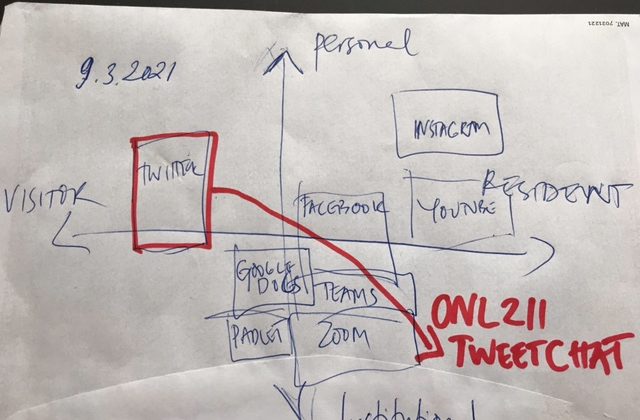 MAT. 7021221
Personal
9.3.2021
INSTAGRAM
TWITTER
VISITOR
FACEBOOK
YOUTUBE
RESIDENT
GOOGLE
DOCS
TEAMS
PADLET
ZOOM
ONL211
TWEETCHAT
Institutional